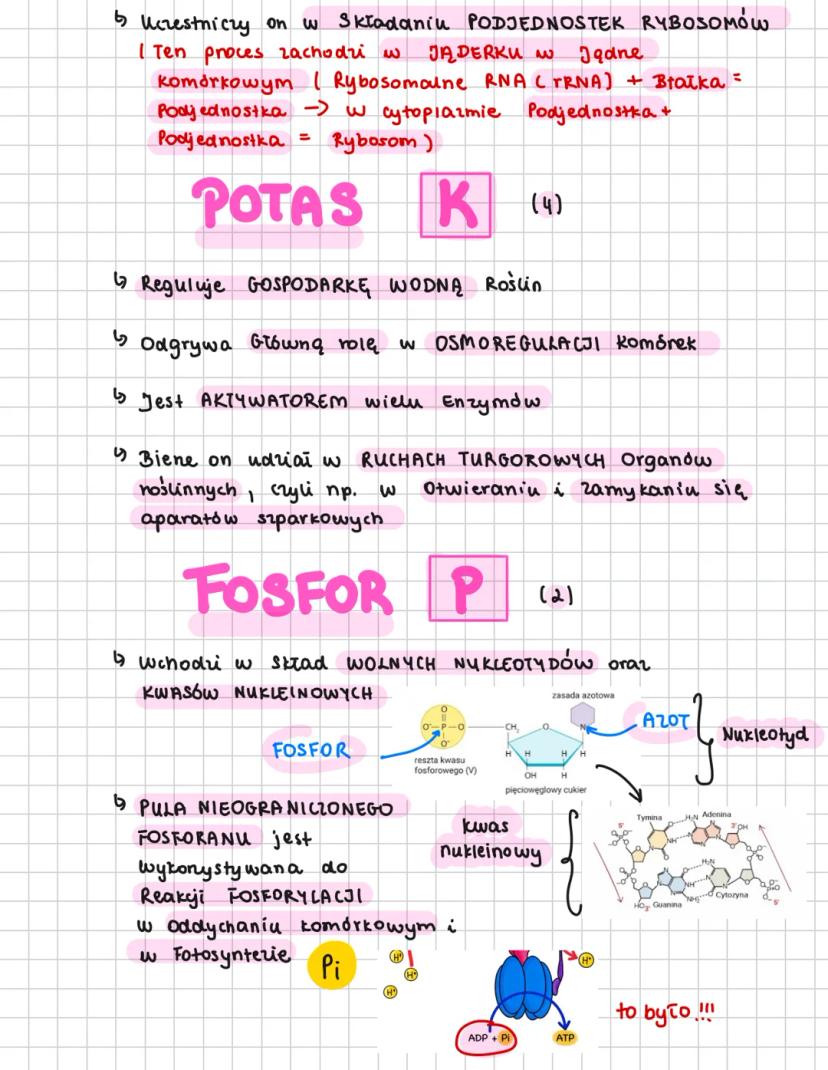 ↳ Uczestniczy on w Składaniu PODJEDNOSTEK RYBOSOMÓW
( Ten proces zachodzi w JĄDERKU w Jądrze
komórkowym ( Rybosomalne RNA (rRNA) + Białka =
Podjednostka → w cytoplazmie Podjednostka +
Podjednostka = Rybosom )
POTAS K (4)
↳ Reguluje GOSPODARKĘ WODNĄ Roślin
↳ Odgrywa Główną rolę w OSMOREGULACJI komórek
↳ Jest AKTYWATOREM wielu Enzymów
↳ Bierze on udział w RUCHACH TURGOROWYCH Organów
roślinnych, czyli np. w Otwieraniu i zamykaniu się
aparatów szparkowych
FOSFOR P (2)
↳ Wchodzi w Skład WOLNYCH NUKLEOTYDÓW oraz
KWASÓW NUKLEINOWYCH
zasada azotowa
O
O⁻ P O CH₂ O N
O⁻
FOSFOR
AZOT
Nukleotyd
H H H H
OH H
reszta kwasu
fosforowego (V)
pięciowęglowy cukier
↳ PULA NIEOGRANICZONEGO
FOSFORANU jest
wykorzystywana do
Reakcji FOSFORYLACJI
w oddychaniu komórkowym i
w Fotosyntezie
Pi
kwas
nukleinowy
Tymina Adenina
5' 3' OH
H₂N
NH N
H₂N
NH N
NH₂ O
HO 3' Guanina Cytozyna 5'
H⁺ H⁺ H⁺ H⁺
ADP + Pi ATP
to było!!!